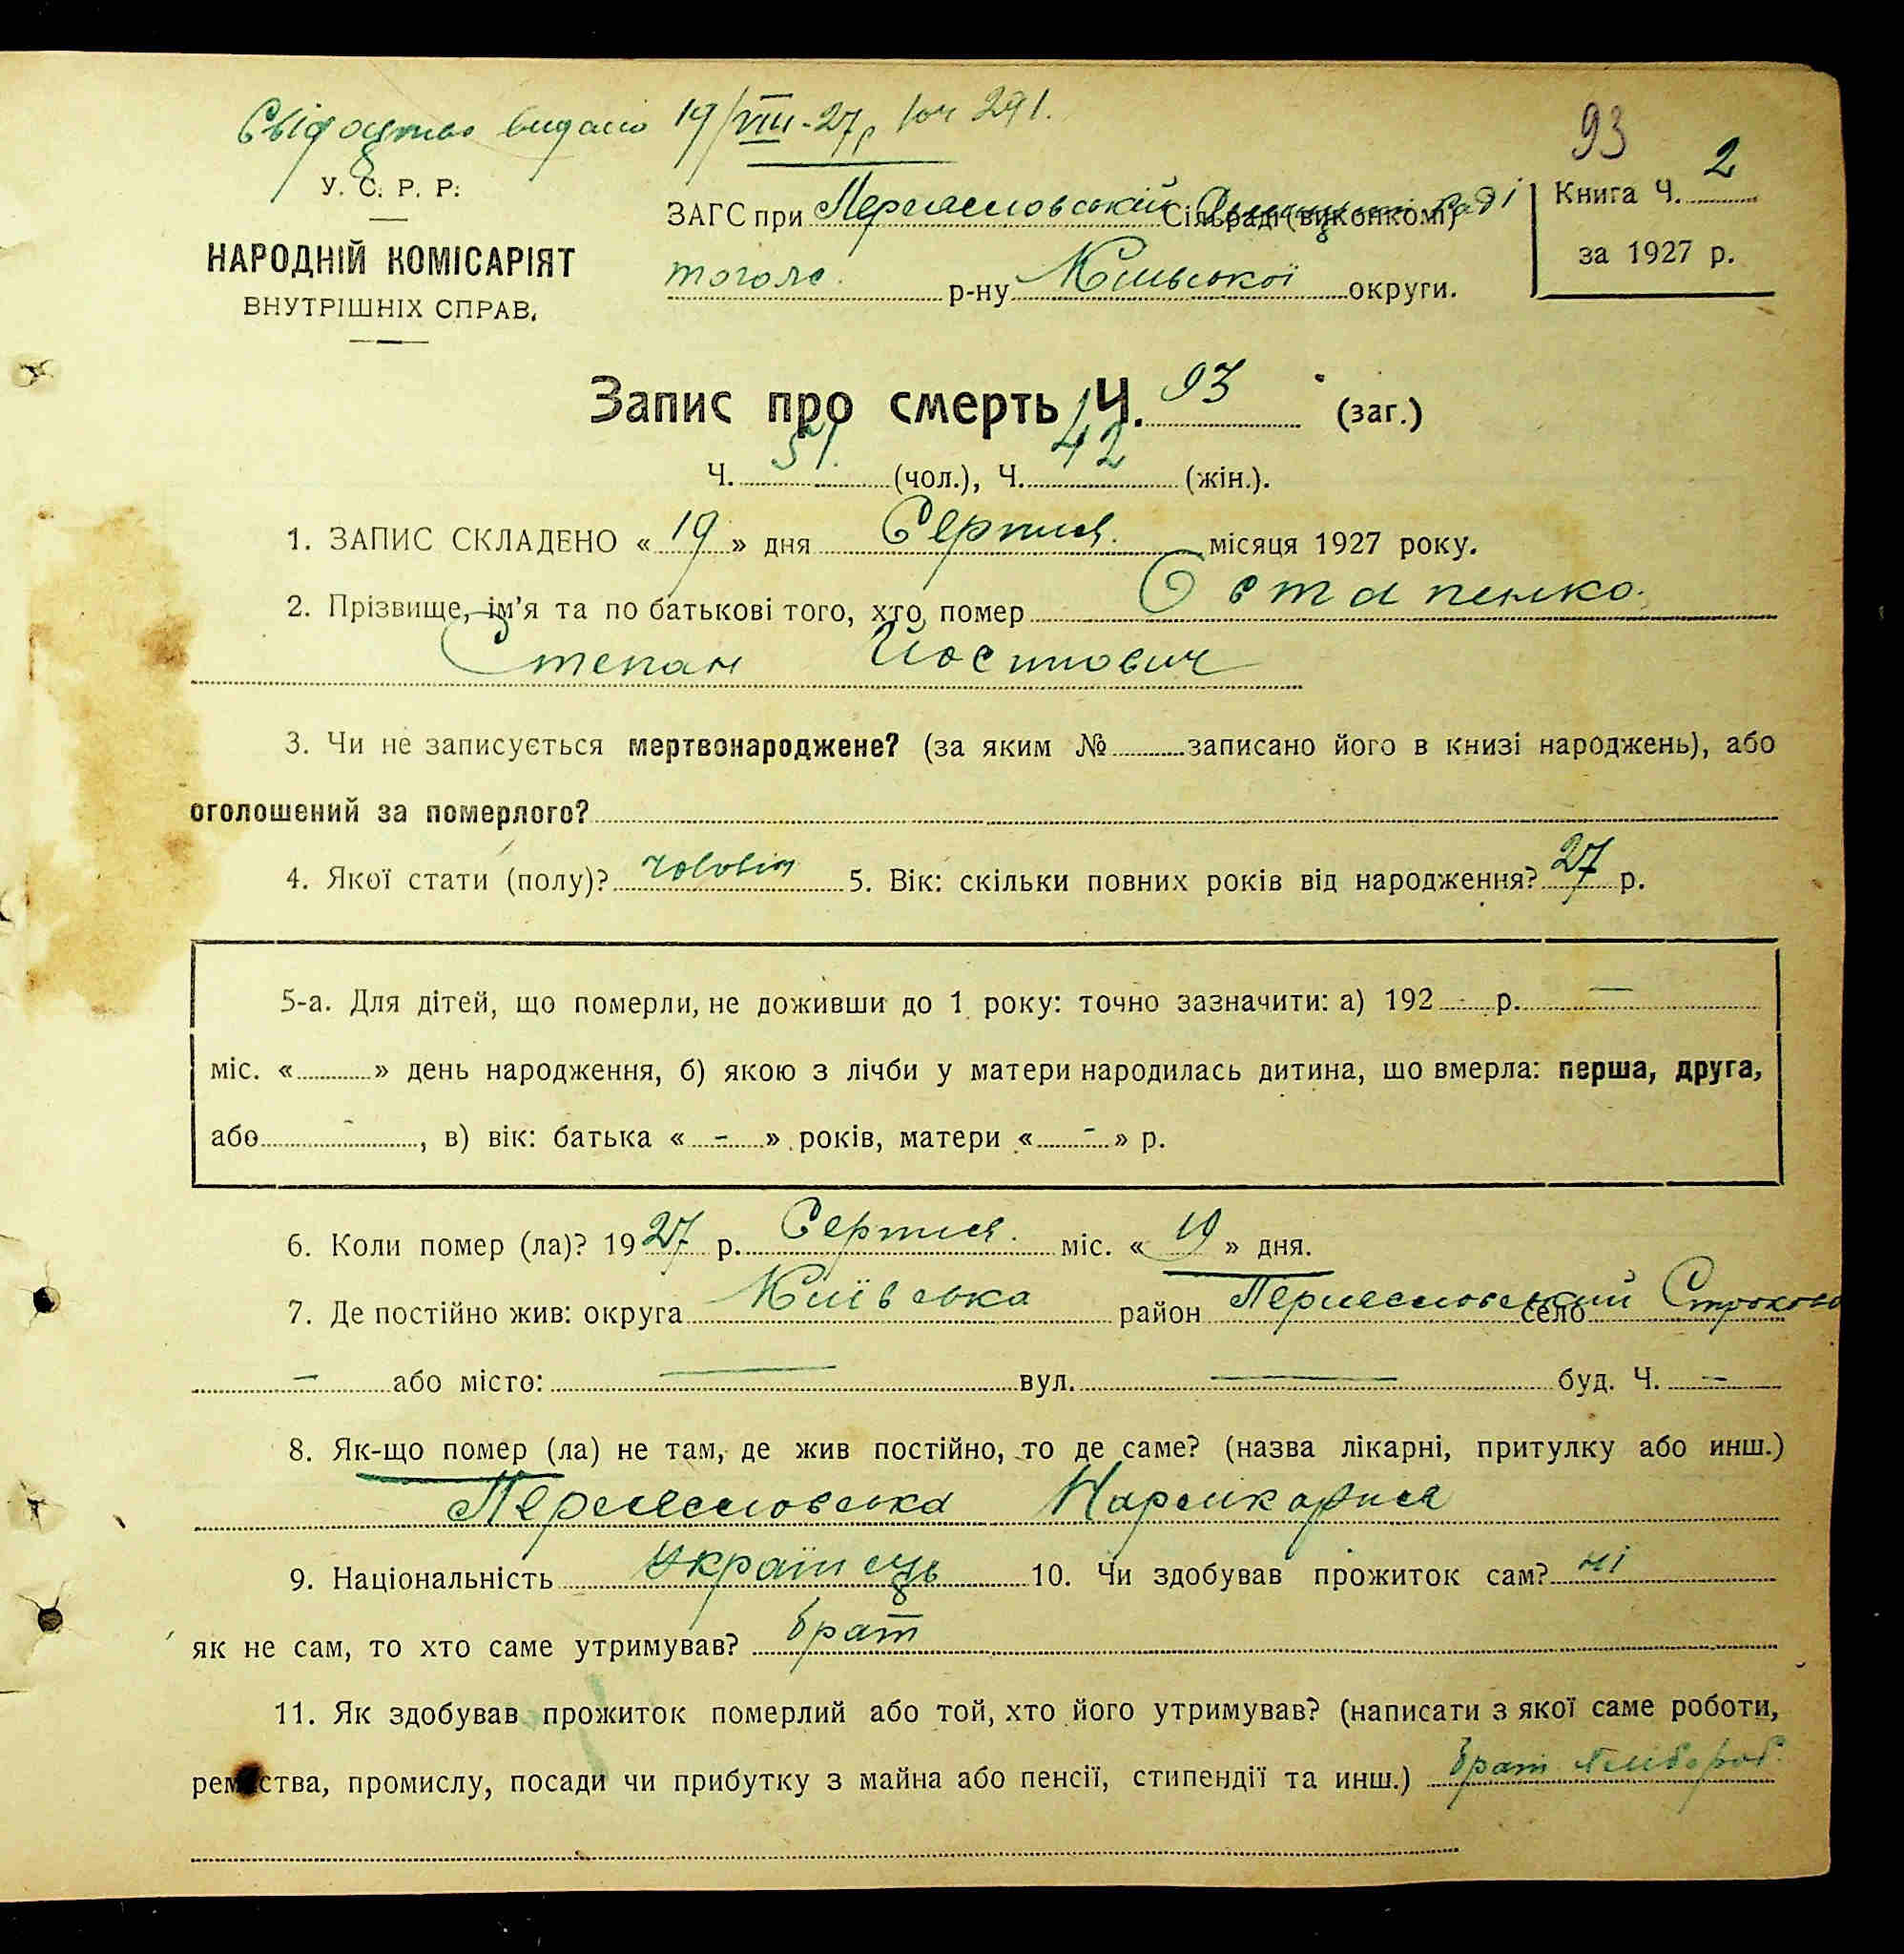 Свідоцтво видано 19/VIII-27р
93
У. С. Р. Р.
НАРОДНІЙ КОМІСАРІЯТ
ВНУТРІШНІХ СПРАВ.
ЗАГС при Переяславській Сільраді (виконкомі) раді
того ж р-ну Київської округи.
Книга Ч. 2
за 1927 р.
Запис про смерть Ч. 93 (заг.)
Ч. 51. (чол.), Ч. 42 (жін.).
1. ЗАПИС СКЛАДЕНО « 19 » дня Серпня. місяця 1927 року.
2. Прізвище, ім’я та по батькові того, хто помер Остапенко.
Степан Йосипович
3. Чи не записується мертвонароджене? (за яким № записано його в книзі народжень), або
оголошений за померлого?
4. Якої стати (полу)? чоловіч 5. Вік: скільки повних років від народження? 27 р.
5-а. Для дітей, що померли, не доживши до 1 року: точно зазначити: а) 192 - р. —
міс. « » день народження, б) якою з лічби у матери народилась дитина, що вмерла: перша, друга,
або - , в) вік: батька « - » років, матери « - » р.
6. Коли помер (ла)? 1927 р. Серпня. міс. « 19 » дня.
7. Де постійно жив: округа Київська район Переяславський село Строкова
— або місто: — вул. — буд. Ч. —
8. Як-що помер (ла) не там, де жив постійно, то де саме? (назва лікарні, притулку або инш.)
Переяславська Нарлікарня
9. Національність Українець 10. Чи здобував прожиток сам? ні
як не сам, то хто саме утримував? брат
11. Як здобував прожиток померлий або той, хто його утримував? (написати з якої саме роботи,
ремества, промислу, посади чи прибутку з майна або пенсії, стипендії та инш.) брат хлібороб.